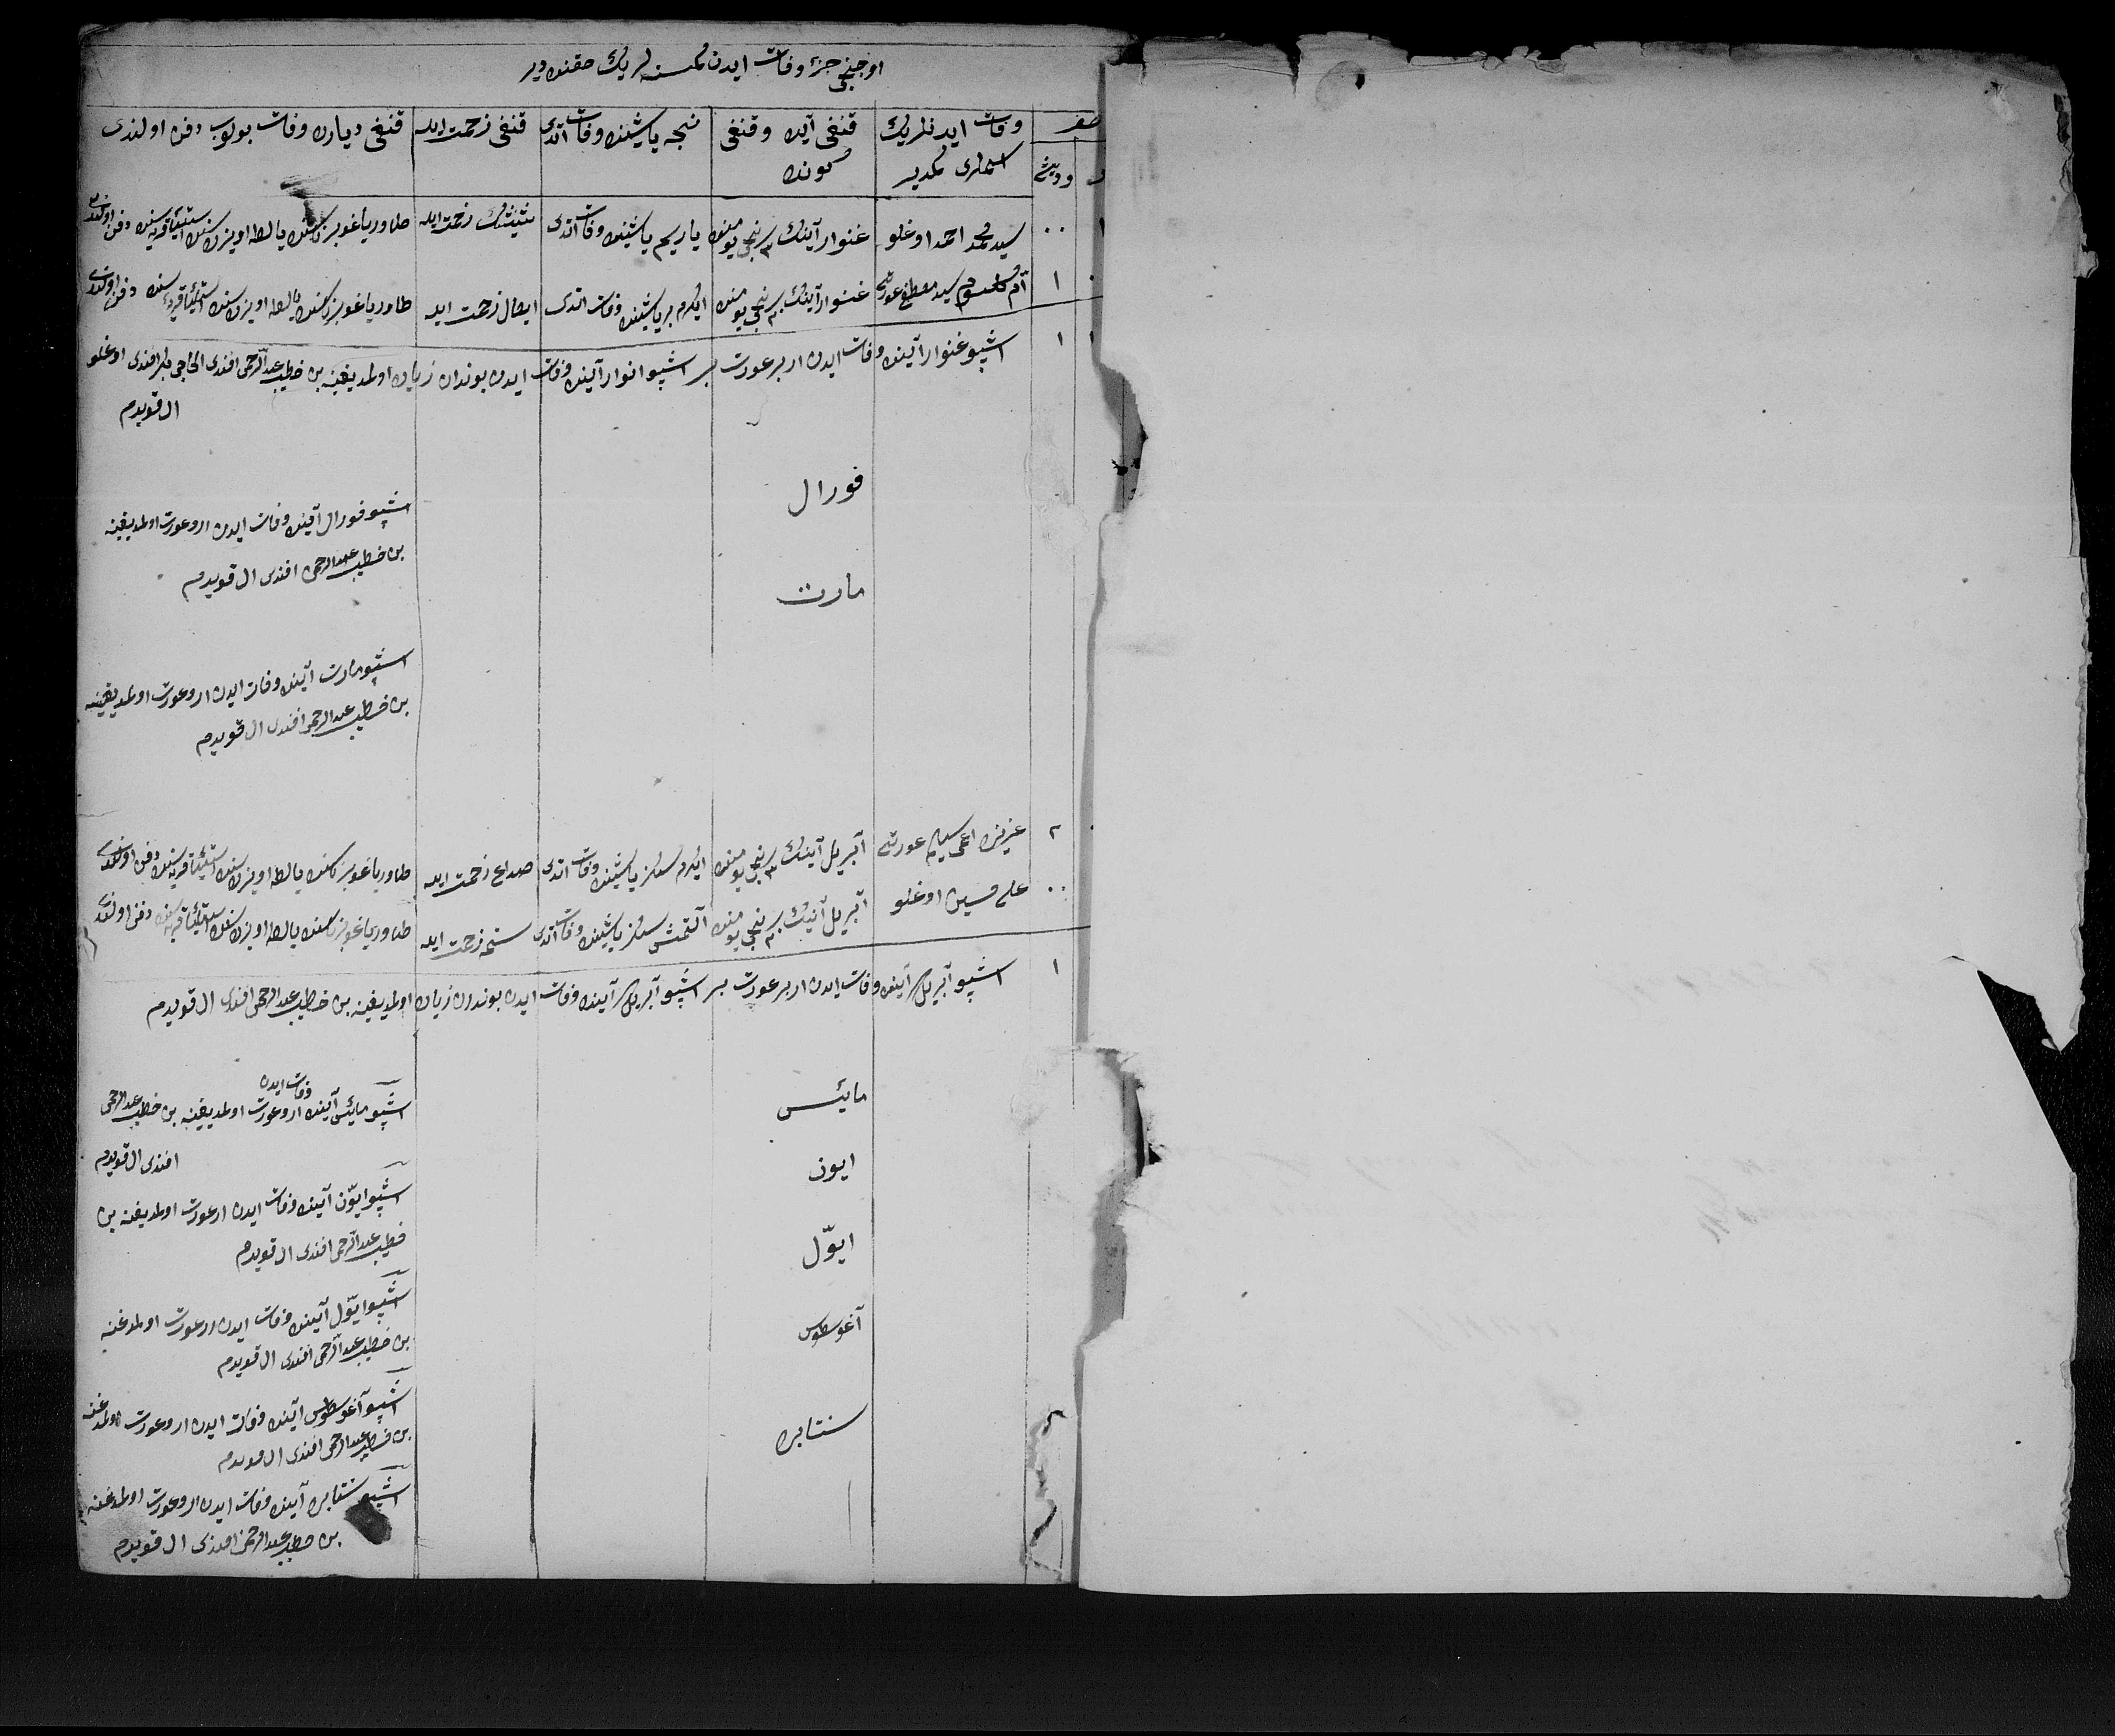 اوچنجی جزء وفات ایدن کمسنه لرینك حقنده در
صفر
وفات ایدنلرینك
اسملری کمدیر
قنغی آیده و قنغی
کونده
نیجه یاشینده وفات اتدی
قنغی زحمت ایله
قنغی دیارده وفات بولوب دفن اولندی
۰۰
سید محمد احمد اوغلو
غنوار آینك ۳ نجی یومنده
یاریم یاشینده وفات اتدی
زحمت ایله
طاوریا غوبرناسنده یالطه اویزدنسنده قریه سنده دفن اولندی
۱
ام کلسوم سید مصطفی عورتی
غنوار آینك نجی یومنده
ایکرم بر یاشینده وفات اتدی
اسهال زحمت ایله
طاوریا غوبرناسنده یالطه اویزدنسنده قریه سنده دفن اولندی
۱
اشبو غنوار آینده وفات ایدن ار بر عورت بر اشبو انوار آینده وفات ایدن بوندان زیاده اولمدیغینه بن خطیب عبدالرحمن افندی الحاجی افندی اوغلو
ال قویدم
فورال
اشبو فورال آینده وفات ایدن ار و عورت اولمدیغینه
بن خطیب عبدالرحمن افندی ال قویدم
مارت
اشبو مارت آینده وفات ایدن ار و عورت اولمدیغینه
بن خطیب عبدالرحمن افندی ال قویدم
۲
عزیزه سلیم عورتی
آبریل آینك ۳ نجی یومنده
ایکرم سکز یاشینده وفات اتدی
صداع زحمت ایله
طاوریا غوبرناسنده یالطه اویزدنسنده قریه سنده دفن اولندی
۰۰
علی حسین اوغلو
آبریل آینك نجی یومنده
آلتمش سکز یاشینده وفات اتدی
زحمت ایله
طاوریا غوبرناسنده یالطه اویزدنسنده قریه سنده دفن اولندی
۱
اشبو آبریل آینده وفات ایدن ار بر عورت بر اشبو آبریل آینده وفات ایدن بوندن زیاده اولمدیغینه بن خطیب عبدالرحمن افندی ال قویدم
مایس
وفات ایدن
اشبو مایس آینده ار و عورت اولمدیغینه بن خطیب عبدالرحمن
افندی ال قویدم
ایون
اشبو ایون آینده وفات ایدن ار عورت اولمدیغنه بن
خطیب عبدالرحمن افندی ال قویدم
ایول
اشبو ایول آینده وفات ایدن ار عورت اولمدغنه
بن خطیب عبدالرحمن افندی ال قویدم
آغوسطوس
اشبو آغوسطوس آینده وفات ایدن ار و عورت اولمدغنه
بن خطیب عبدالرحمن افندی ال قویدم
سنتابره
اشبو سنتابره آینده وفات ایدن ار و عورت اولمدغنه
بن خطیب عبدالرحمن افندی ال قویدم